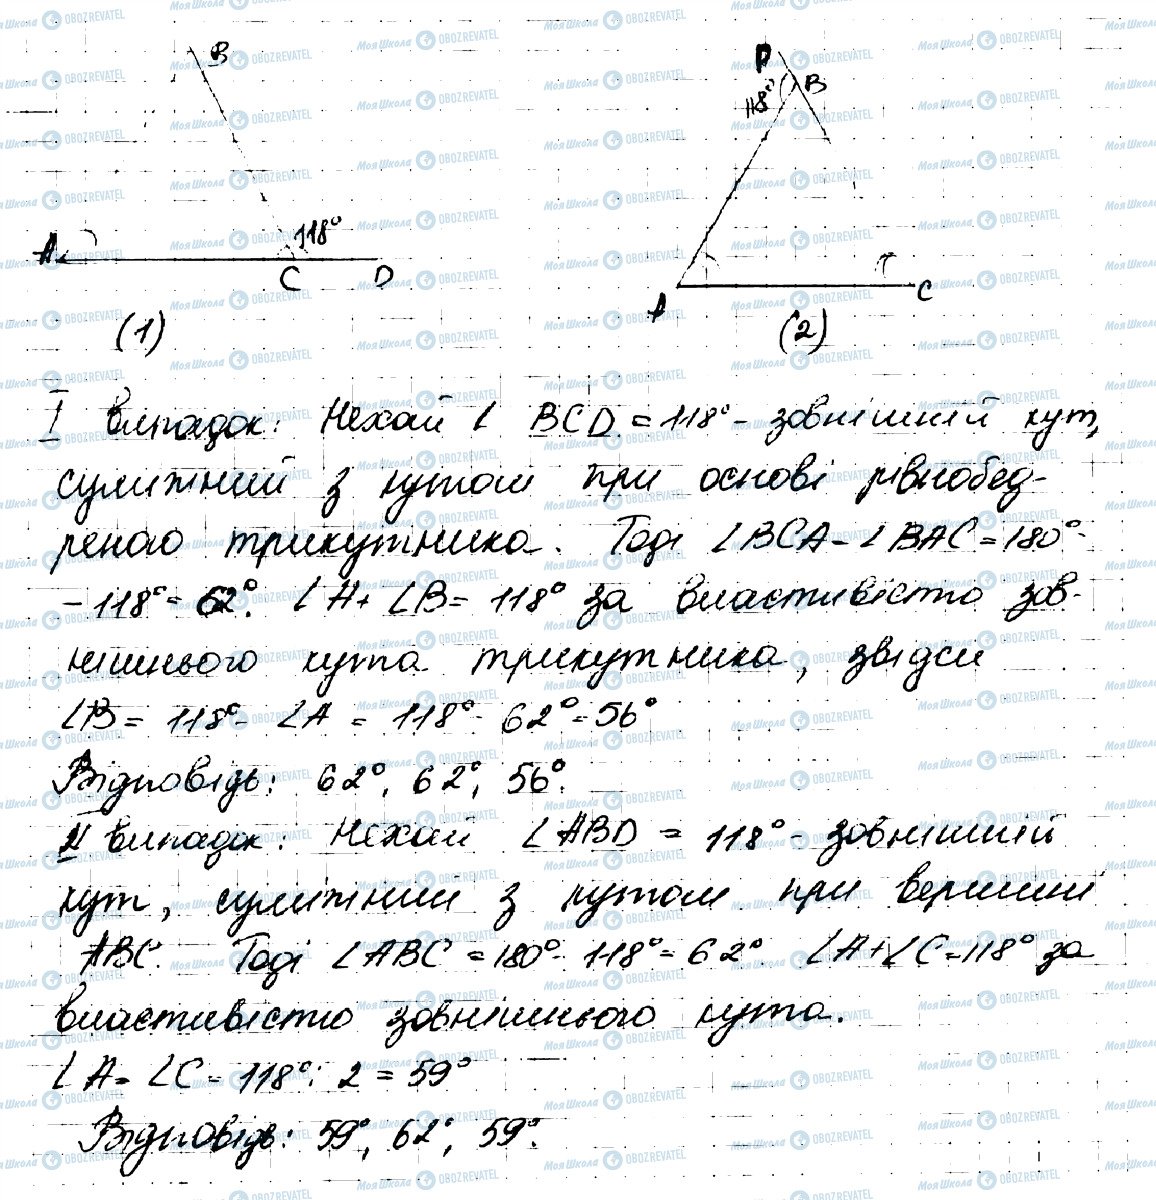 B
118°
A
C
D
(1)
D
B
118°
A
C
(2)
I випадок: Нехай ∠ BCD = 118° - зовнішній кут,
суміжний з кутом при основі рівнобед-
реного трикутника. Тоді ∠BCA = ∠BAC = 180° -
- 118° = 62°. ∠A + ∠B = 118° за властивістю зов-
нішнього кута трикутника, звідси
∠B = 118° - ∠A = 118° - 62° = 56°
Відповідь: 62°, 62°, 56°.
II випадок: Нехай ∠ABD = 118° - зовнішній
кут, суміжний з кутом при вершині
ABC. Тоді ∠ABC = 180° - 118° = 62°. ∠A + ∠C = 118° за
властивістю зовнішнього кута.
∠A = ∠C = 118° : 2 = 59°
Відповідь: 59°, 62°, 59°.
Моя Школа OBOZREVATEL